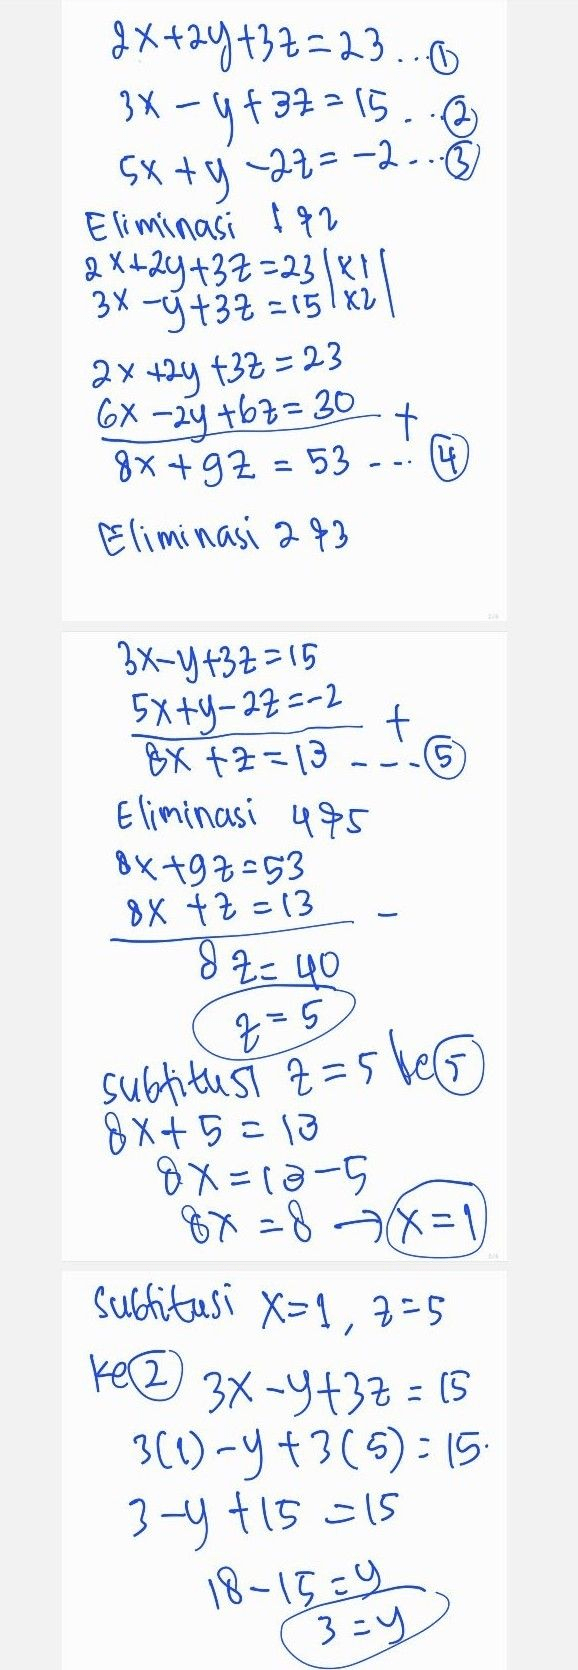 2x+2y+3z=23...①
3x-y+3z=15...②
5x+y-2z=-2...③
Eliminasi 1 & 2
2x+2y+3z=23|x1|
3x-y+3z=15|x2|
2x+2y+3z=23
6x-2y+6z=30 +
8x+9z=53...④
Eliminasi 2 & 3
3x-y+3z=15
5x+y-2z=-2 +
8x+z=13 ---.⑤
Eliminasi 4 & 5
8x+9z=53
8x+z=13 -
8z=40
z=5
Subtitusi z=5 ke ⑤
8x+5=13
8x=13-5
8x=8 → x=1
Subtitusi x=1, z=5
ke ② 3x-y+3z=15
3(1)-y+3(5)=15.
3-y+15=15
18-15=y
3=y